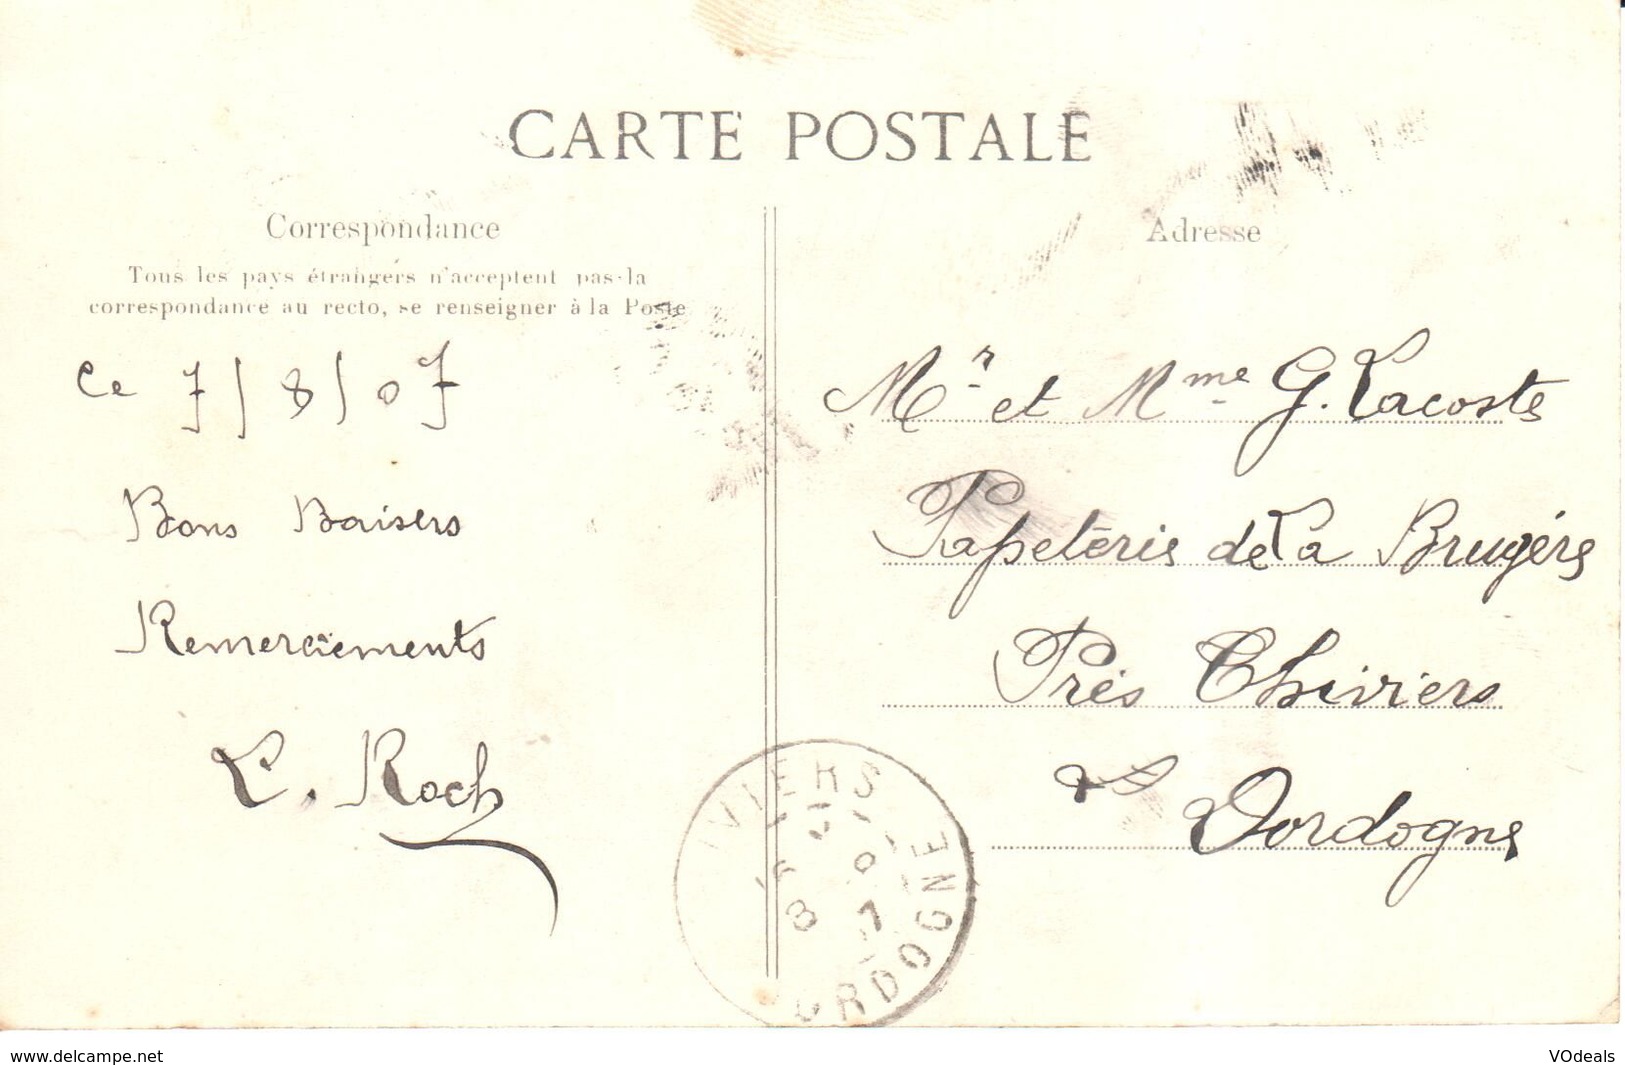 CARTE POSTALE
Correspondance
Tous les pays étrangers n'acceptent pas la
correspondance au recto, se renseigner à la Poste
Ce 7/8/07
Bons Baisers
Remerciements
L. Roch
Adresse
Mr et Mme G. Lacoste
Papeterie de La Brugère
Près Thiviers
Dordogne
IVIERS
DORDOGNE
www.delcampe.net
VOdeals